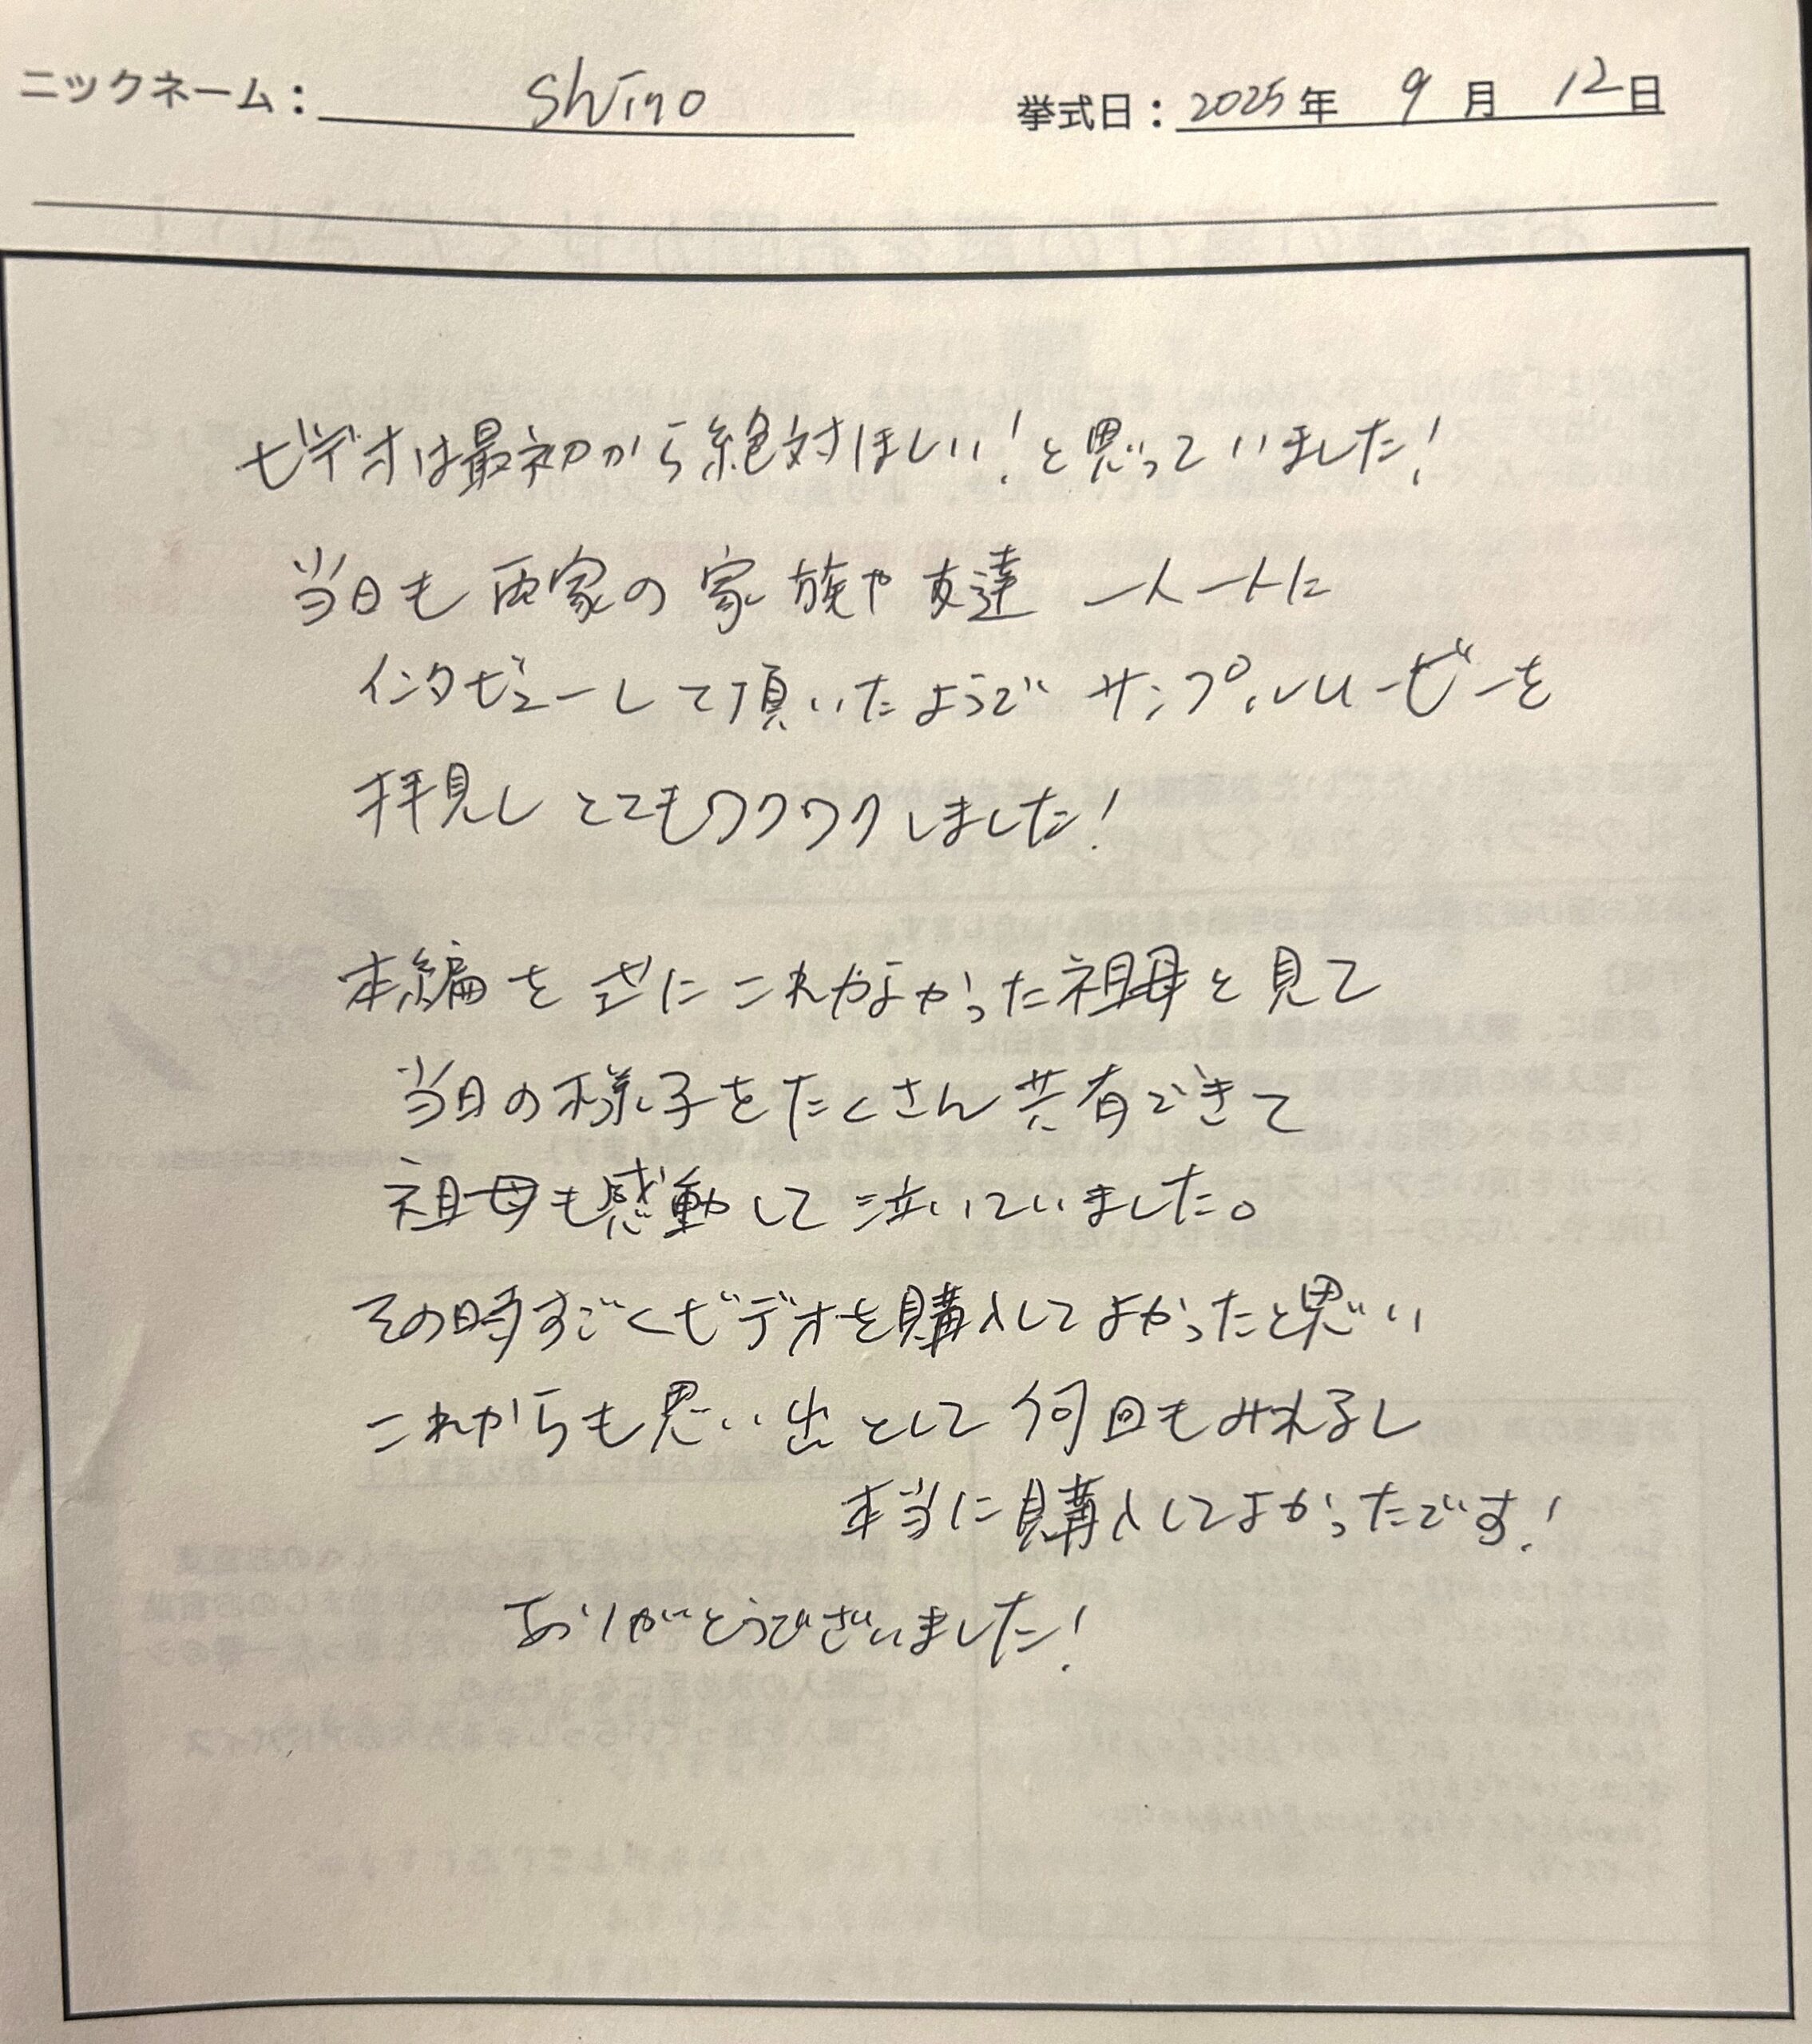 ニックネーム: Shino
挙式日: 2025年 9月 12日
ビデオは最初から絶対ほしい!と思っていました!
当日も両家の家族や友達 一人一人に
インタビューして頂いたようで サンプルムービーを
拝見し とてもワクワクしました!
本編を式にこれなかった祖母と見て
当日の様子をたくさん共有できて
祖母も感動して泣いていました。
その時すごくビデオを購入してよかったと思い
これからも思い出として何回もみれるし
本当に購入してよかったです!
ありがとうございました!